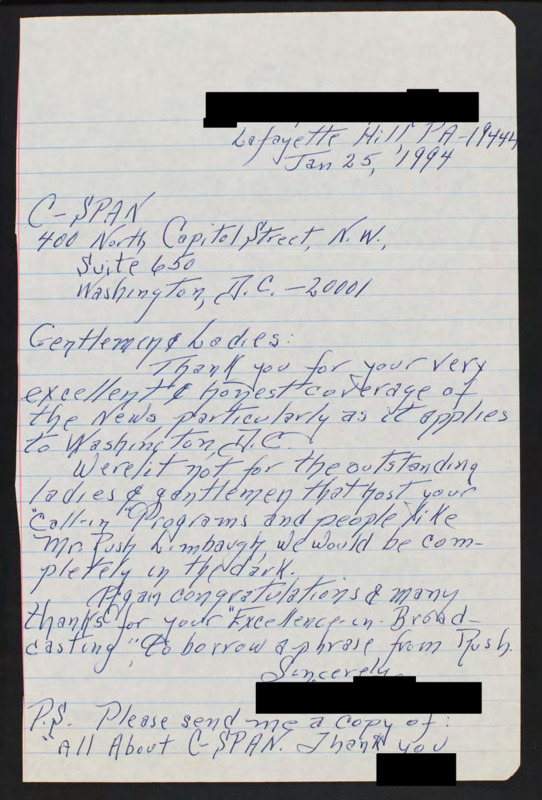 Lafayette Hill, PA-19444
Jan 25, 1994
C-SPAN
400 North Capitol Street, N.W.,
Suite 650
Washington, D.C. -20001
Gentlemen & Ladies:
Thank you for your very
excellent & honest coverage of
the News particularly as it applies
to Washington, D.C.
Were it not for the outstanding
ladies & gentlemen that host your
"Call-in" Programs and people like
Mr. Rush Limbaugh, we would be com-
pletely in the dark.
Again congratulations & many
thanks for your "Excellence-in-Broad-
casting", to borrow a phrase from Rush.
Sincerely,
P.S. Please send me a copy of:
"All About C-SPAN. Thank you